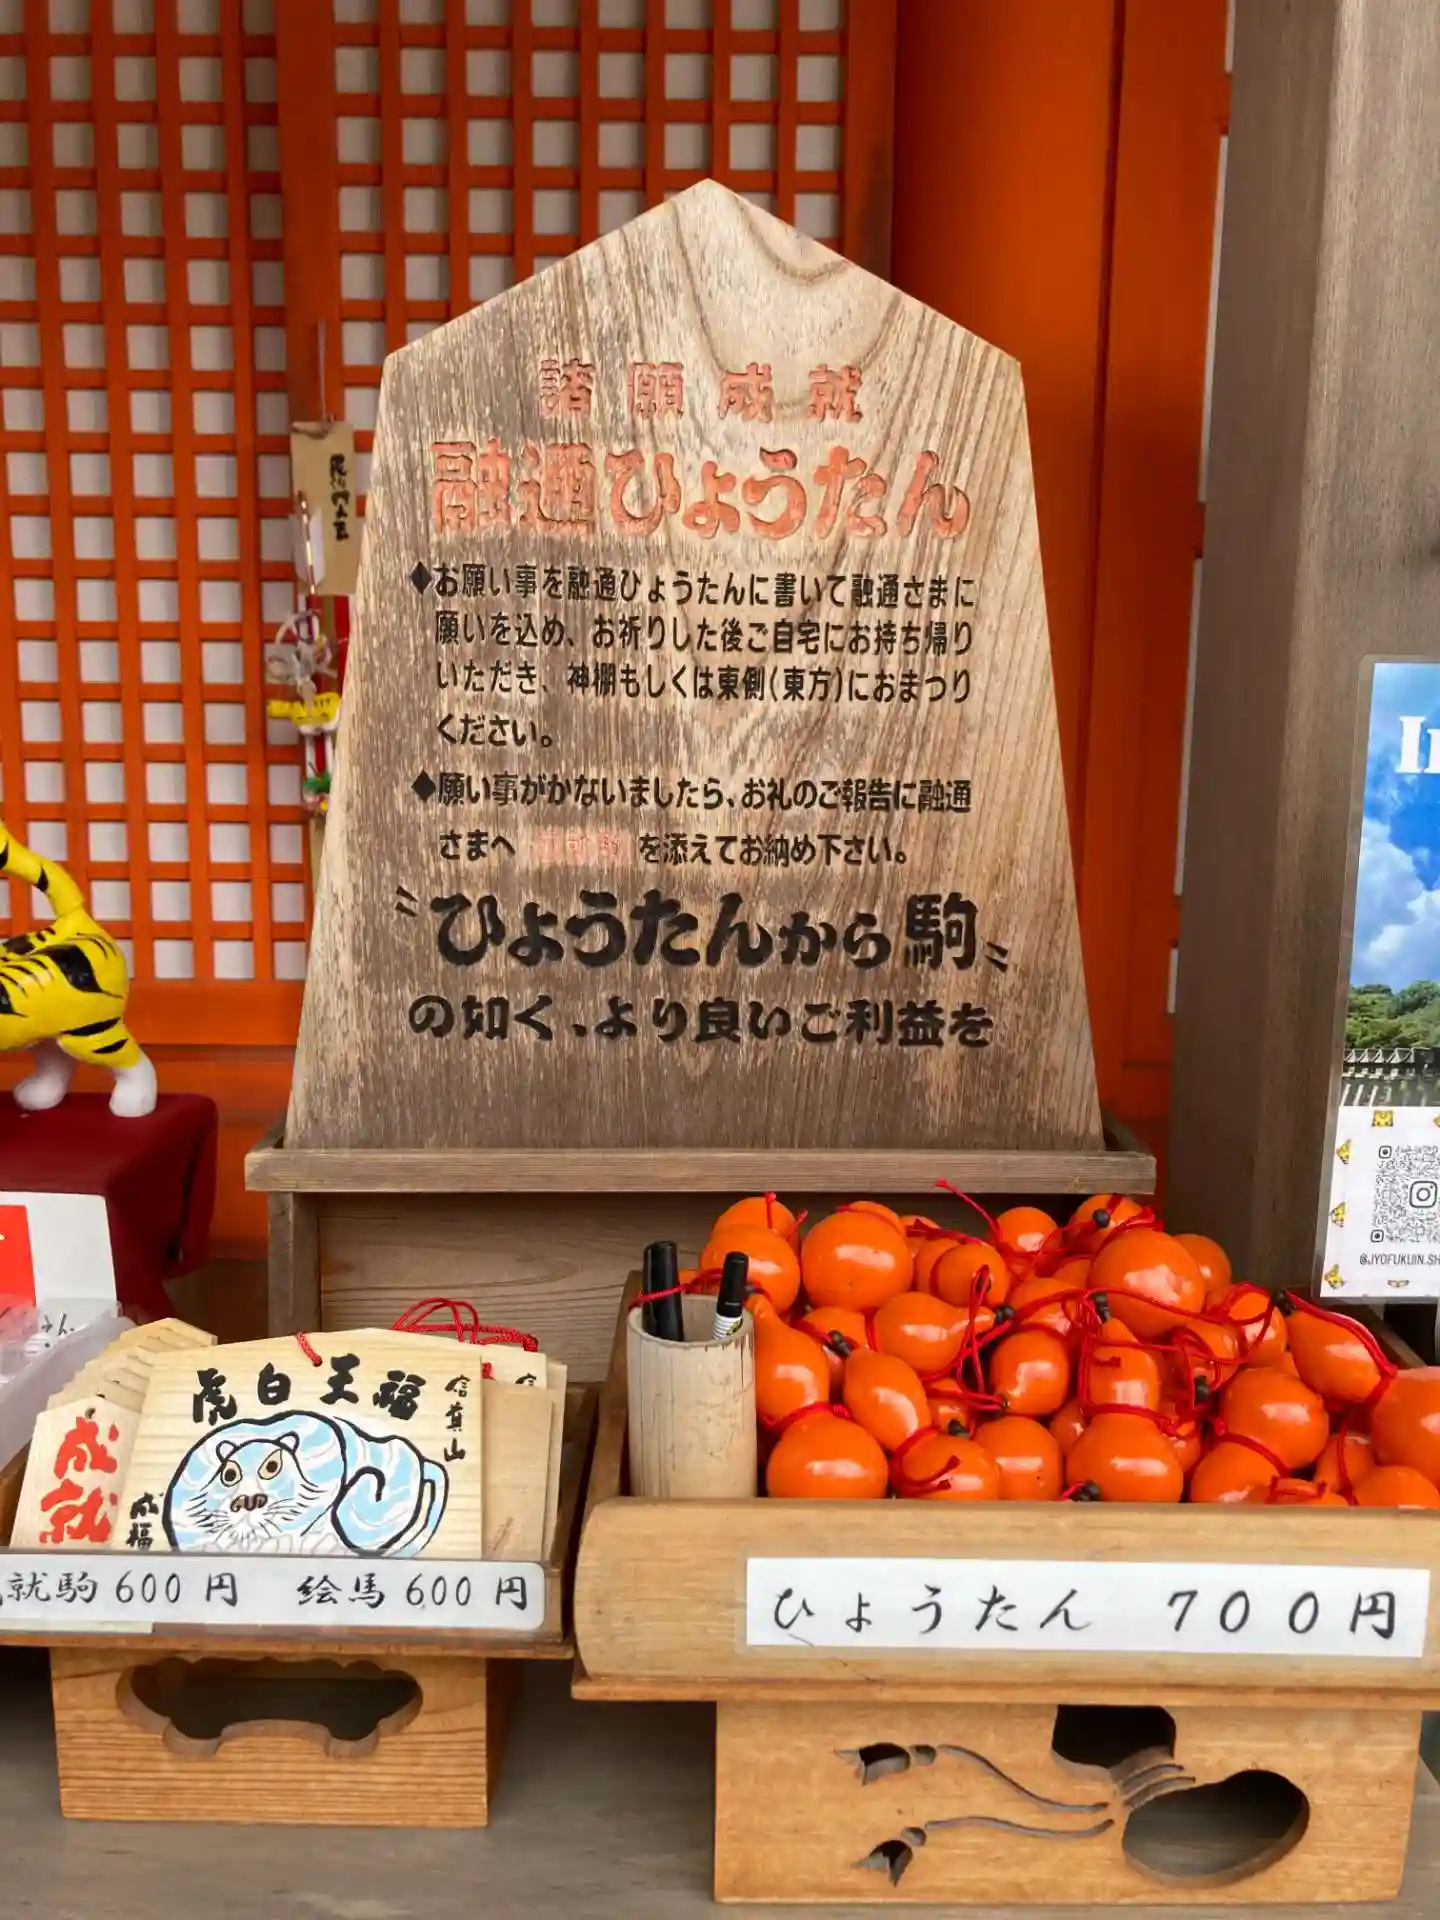 諸願成就
融通ひょうたん
◆お願い事を融通ひょうたんに書いて融通さまに
願いを込め、お祈りした後ご自宅にお持ち帰り
いただき、神棚もしくは東側(東方)におまつり
ください。
◆願い事がかないましたら、お礼のご報告に融通
さまへ 成就駒 を添えてお納め下さい。
〝ひょうたんから駒〟
の如く、より良いご利益を
虎白王福
信貴山
成福
成就
就駒600円 絵馬600円
ひょうたん 700円
@JYOFUKUIN.SH